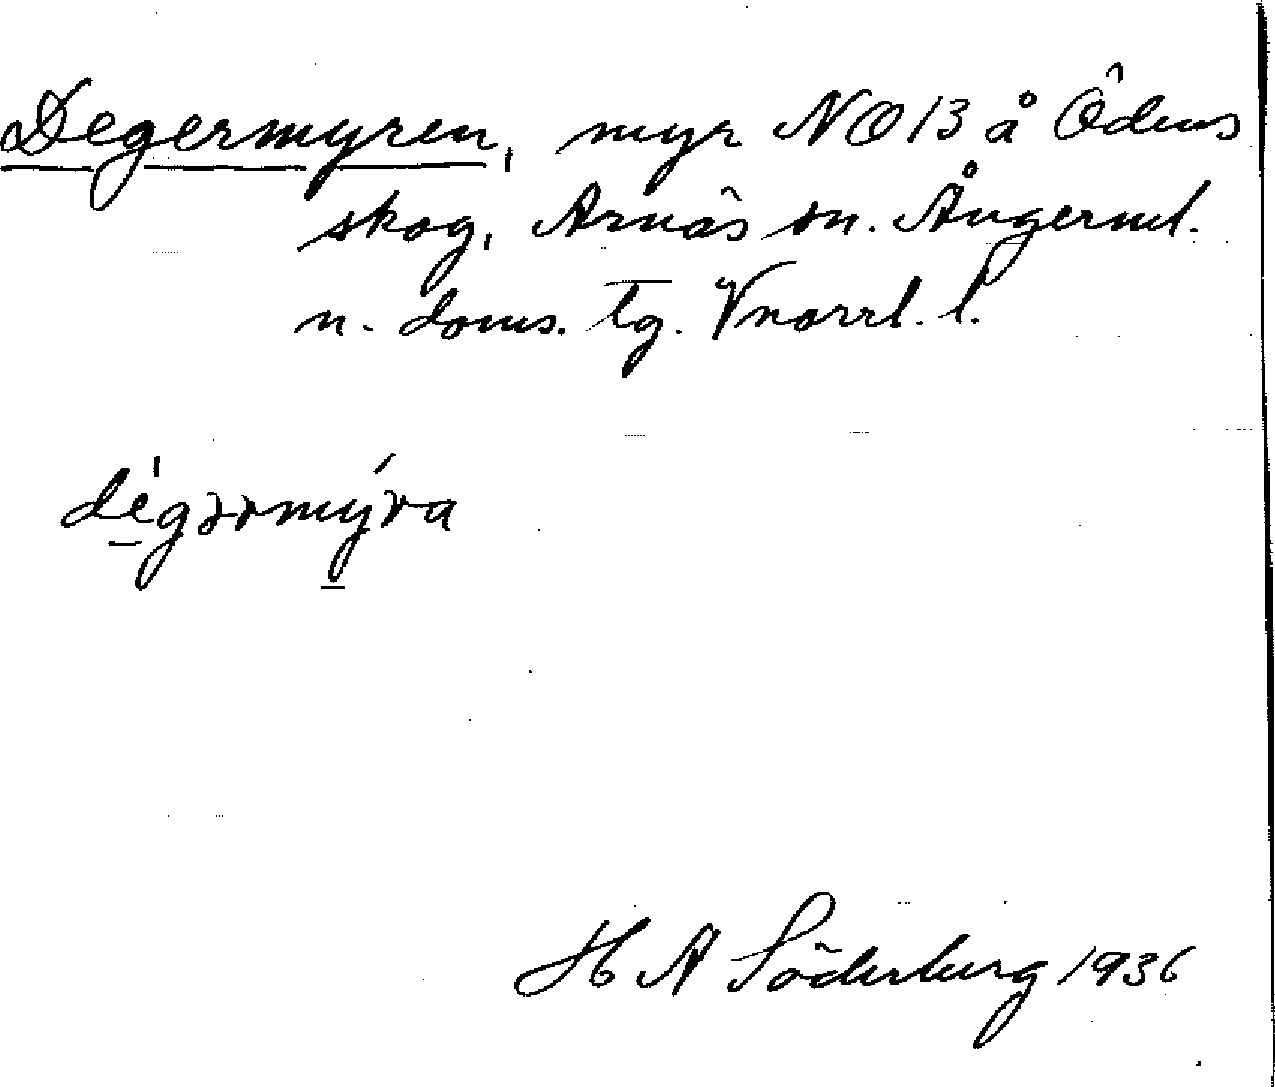 Degermyren, myr NO 13 å Ödens
skog, Arnäs sn. Ångerml.
n. doms. tg. Vnorrl. l.
de̱gərmy̱ra
H A Söderberg 1936